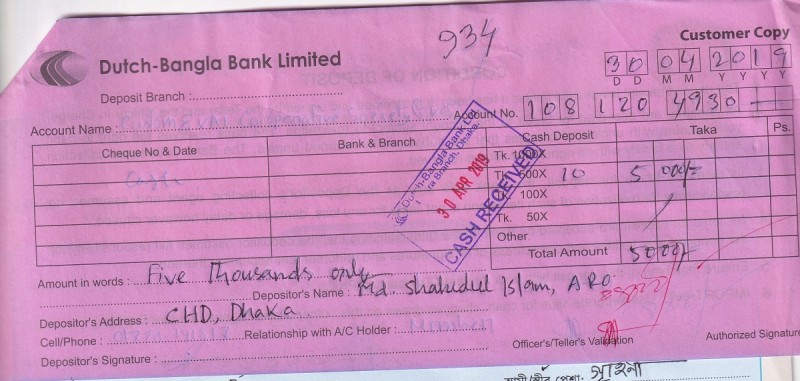 934
Customer Copy
Dutch-Bangla Bank Limited
30 04 2019
D D M M Y Y Y Y
Deposit Branch :
Account Name :
Account No. 108 120 4930
Cheque No & Date Bank & Branch Cash Deposit Taka Ps.
Tk. 1000X
Tk. 500X 10 5 000/-
Tk. 100X
Tk. 50X
Other
Total Amount 5000/-
Dutch-Bangla Bank Ltd.
ra Branch, Dhaka.
30 APR 2019
CASH RECEIVED
Amount in words : Five Thousands only
Depositor's Name : Md. Shahidul Islam, ARO
Depositor's Address : CHD, Dhaka
Cell/Phone : Relationship with A/C Holder :
Depositor's Signature :
Officer's/Teller's Validation
Authorized Signature